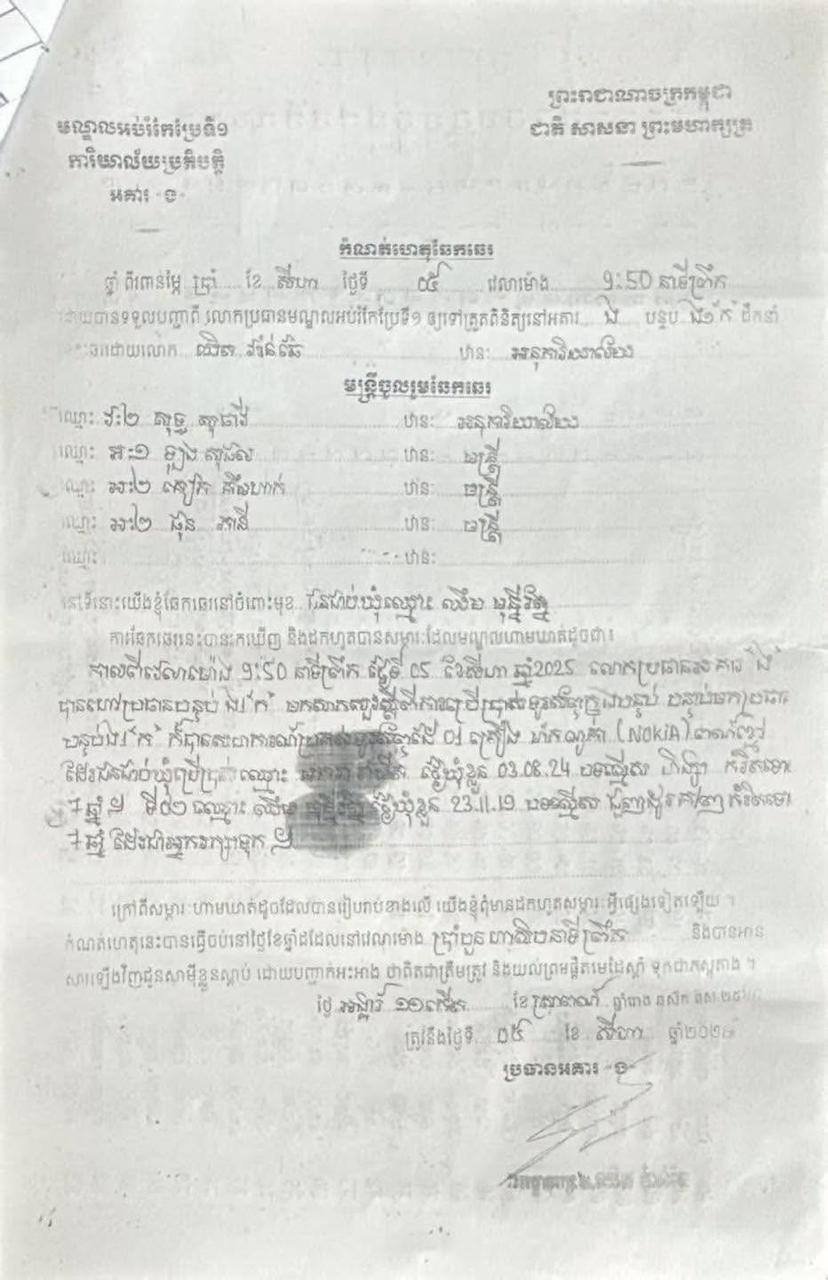 ព្រះរាជាណាចក្រកម្ពុជា
ជាតិ សាសនា ព្រះមហាក្សត្រ
មណ្ឌលអប់រំកែប្រែទី១
ការិយាល័យប្រតិបត្តិ
អគារ -ង-
កំណត់ហេតុឆែកឆេរ
ឆ្នាំ ពីរពាន់ម្ភៃ ប្រាំ ខែ សីហា ថ្ងៃទី ០៥ វេលាម៉ោង 9:50 នាទីព្រឹក
ដោយបានទទួលបញ្ជាពី លោកប្រធានមណ្ឌលអប់រំកែប្រែទី១ ឲ្យទៅត្រួតពិនិត្យនៅអគារ ង បន្ទប់ ង១"ក" ដឹកនាំ
ឆែកឆេរដោយលោក ឋានៈ អនុការិយាល័យ
មន្ត្រីចូលរួមឆែកឆេរ
ឈ្មោះ វះ២ សុទ្ធ សុផាវី ឋានៈ អនុការិយាល័យ
ឈ្មោះ អះ១ ឡុង សុផល ឋានៈ មន្ត្រី
ឈ្មោះ អះ២ គឹមហាក់ ឋានៈ មន្ត្រី
ឈ្មោះ អះ២ ផុន ភានី ឋានៈ មន្ត្រី
ឈ្មោះ ឋានៈ
នៅទីនោះយើងខ្ញុំឆែកឆេរនៅចំពោះមុខ ជនជាប់ឃុំឈ្មោះ ឈឹម មុន្នីរ័ត្ន
ការឆែកឆេរនេះបានរកឃើញ និងដកហូតបានសម្ភារៈដែលមណ្ឌលហាមឃាត់ដូចជា៖
កាលពីវេលាម៉ោង 9:50 នាទីព្រឹក ថ្ងៃទី 05 ខែសីហា ឆ្នាំ2025 លោកប្រធានអគារ "ង"
បានហៅប្រធានបន្ទប់ ង១"ក" មកសាកសួរស្តីពីការប្រើប្រាស់ទូរស័ព្ទក្នុងបន្ទប់ បន្ទាប់មកប្រធាន
បន្ទប់ង១"ក" ក៏បានសហការណ៍ប្រគល់ទូរស័ព្ទដៃ 01 គ្រឿង ម៉ាកណូគា (NOKIA) ពណ៌ខ្មៅ
ដែលជនជាប់ឃុំប្រើប្រាស់ ឈ្មោះ ថ្ងៃឃុំខ្លួន 03.08.24 បទល្មើស ហិង្សា កំរិតទោស
7 ឆ្នាំ ។ ទី០២ ឈ្មោះ ឈឹម មុន្នីរ័ត្ន ថ្ងៃឃុំខ្លួន 23.11.19 បទល្មើស ជួញដូរ កំរិតទោស
7 ឆ្នាំ ដែលជាអ្នករក្សាទុក ។
ក្រៅពីសម្ភារៈហាមឃាត់ដូចដែលបានរៀបរាប់ខាងលើ យើងខ្ញុំពុំមានដកហូតសម្ភារៈអ្វីផ្សេងទៀតឡើយ ។
កំណត់ហេតុនេះបានធ្វើចប់នៅថ្ងៃខែឆ្នាំដដែលនៅវេលាម៉ោង ប្រាំបួន ហាសិបនាទីព្រឹក និងបានអាន
សារឡើងវិញជូនសាមីខ្លួនស្តាប់ ដោយបញ្ជាក់អះអាង ថាពិតជាត្រឹមត្រូវ និងយល់ព្រមផ្តិតមេដៃស្តាំ ទុកជាភស្តុតាង ។
ថ្ងៃ អង្គារ ១១កើត ខែ ស្រាពណ៍ ឆ្នាំម្សាញ់
ត្រូវនឹងថ្ងៃទី ០៥ ខែ សីហា ឆ្នាំ២០២៥
ប្រធានអគារ -ង-